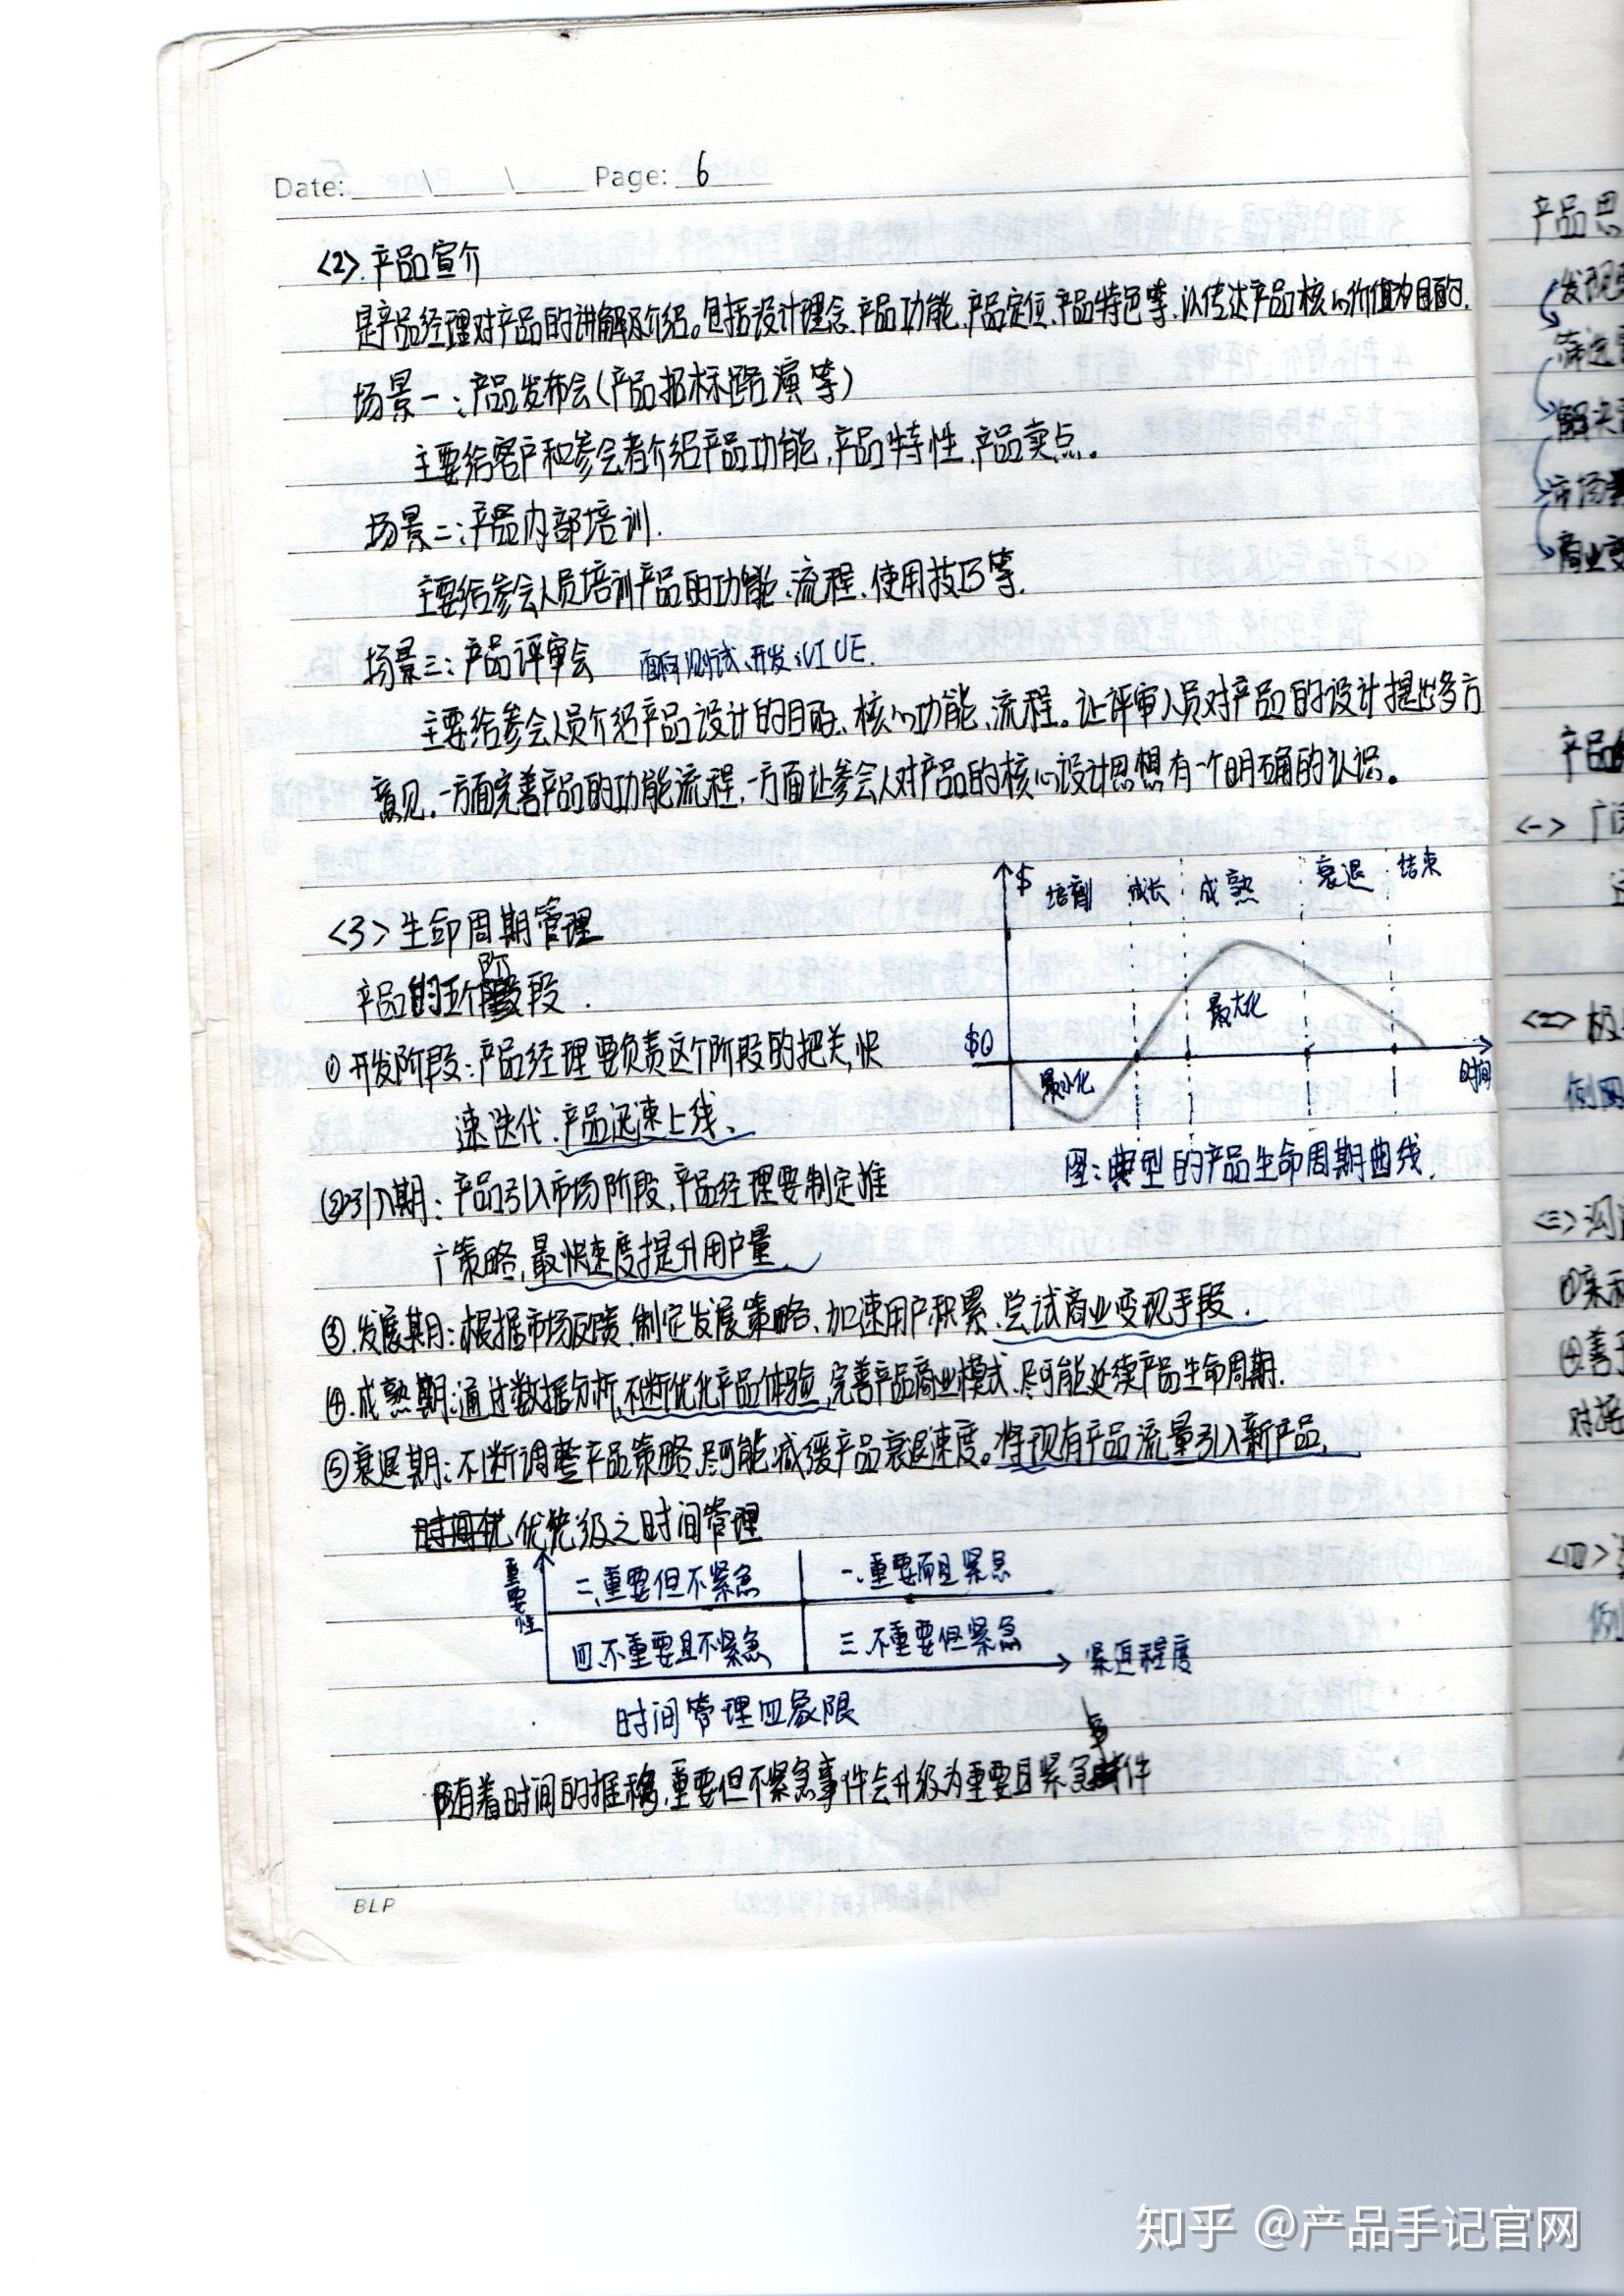 Date: \ \ Page: 6
<2>.产品宣介
是产品经理对产品的讲解及介绍。包括设计理念、产品功能、产品定位、产品特色等,以传达产品核心价值为目的.
场景一:产品发布会(产品招标路演等)
主要给客户和参会者介绍产品功能,产品特性、产品卖点。
场景二:产品内部培训.
主要给参会人员培训产品的功能、流程、使用技巧等.
场景三:产品评审会 面向测试、开发、UI UE.
主要给参会人员介绍产品设计的目的、核心功能、流程。让评审人员对产品的设计提出多方
意见,一方面完善产品的功能流程,一方面让参会人对产品的核心设计思想有一个明确的认识。
$ 培育 成长 成熟 衰退 结束
<3>生命周期管理
产品的五个阶段.
最大化
$0
最小化
时间
①开发阶段:产品经理要负责这个阶段的把关,快
速迭代、产品迅速上线、
图:典型的产品生命周期曲线.
②引入期:产品引入市场阶段,产品经理要制定推
广策略,最快速度提升用户量.
③.发展期:根据市场反馈,制定发展策略、加速用户积累、尝试商业变现手段.
④.成熟期:通过数据分析,不断优化产品体验,完善产品商业模式、尽可能延续产品生命周期.
⑤衰退期:不断调整产品策略,尽可能减缓产品衰退速度。将现有产品流量引入新产品,
时间优 优先级之时间管理
重要性
二、重要但不紧急 一、重要而且紧急
四、不重要且不紧急 三、不重要但紧急
紧迫程度
时间管理四象限
随着时间的推移,重要但不紧急事件会升级为重要且紧急事件
BLP
产品思
发现
筛选
解决
市场
商业变
产品
<一>广
<二>极
例
<三>沟
①亲
④善
对接
<四>
例
知乎 @产品手记官网